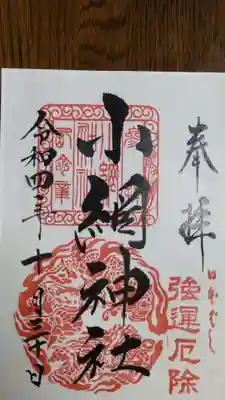 奉拝
強運厄除
小網神社
令和四年十月三十日